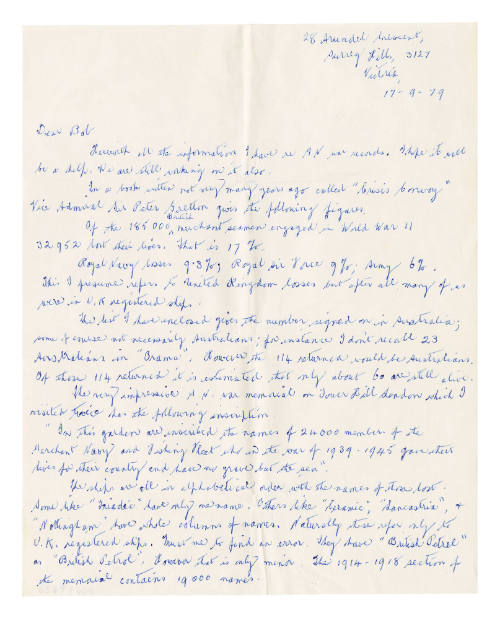 28 Arundel Crescent,
Surrey Hills, 3127
Victoria,
17-9-79
Dear Bob
Herewith all the information I have re M.N. war records. I hope it will
be a help. We are still working on it also.
In a book written not very many years ago called "Crisis Convoy"
Vice Admiral Sir Peter Gretton gives the following figures.
Of the 185 000 British merchant seamen engaged in World War II
32 952 lost their lives. That is 17 %.
Royal Navy losses 9.3%; Royal Air Force 9%; Army 6%.
This I presume refers to United Kingdom losses but after all many of us
were in U.K registered ships.
The list I have enclosed gives the number signed on in Australia;
some of course not necessarily Australians; for instance I don't recall 23
Australians in "Orama". However the 114 returned would be Australians.
Of those 114 returned it is estimated that only about 60 are still alive.
The very impressive M.N. war memorial on Tower Hill London which I
visited twice has the following inscription
"In this garden are inscribed the names of 24000 members of the
Merchant Navy and Fishing Fleet who in the war of 1939-1945 gave their
lives for their country and have no grave but the sea".
The ships are all in alphabetical order with the names of those lost.
Some like "Triadic" have only one name. Others like "Ceramic", "Lancastria", &
"Nottingham" have whole columns of names. Naturally these refer only to
U.K. registered ships. Trust me to find an error. They have "British Petrel"
as "British Petrol". However that is only minor. The 1914-1918 section of
the memorial contains 19000 names.